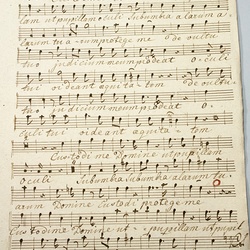 lam ut pupillam oculi Subumbra alarum a
larum tuarum protege me De vultu
tuo judicium meum prodeat oculi
tui videant aquitatem De vultu
tuo judicium meum prodeat o
culi tui videant aquitatem
Custodi me Domine ut pupillam
oculi Subumbra Subumbra alarum tu
arum Domine Custodi protege me
Custodi me Domine ut pupillam ut pupil